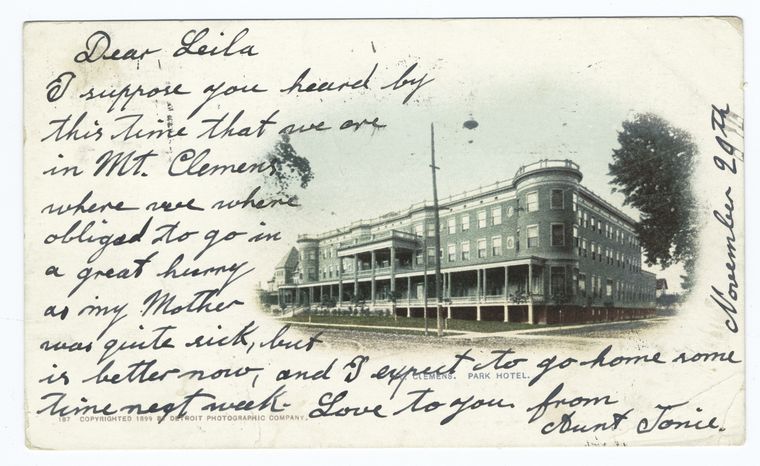 Dear Leila
I suppose you heard by
this time that we are
in Mt. Clemens
where we where
obliged to go in
a great hurry
as my Mother
was quite sick, but
is better now, and I expect to go home some
time next week. Love to you from
Aunt Tonie.
November 20th
CLEMENS. PARK HOTEL.
187 COPYRIGHTED 1899 BY DETROIT PHOTOGRAPHIC COMPANY.